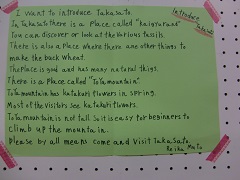 I want to introduce Takasato.
Introduce
Takasato
In Takasato there is a Place called "kaigyuRand"
You can discover or look at the various fossils.
There is also a Place where there are other things to
make the buck wheat.
The Place is good and has many natural thigs.
There is a Place called "ToYamountain"
ToYamountain has katakuri flowers in spring.
Most of the visiters see katakuri flowers.
ToYamountain is not tall so it is easy for beginners to
climb up the mountain.
Please by all means come and Visit Takasato.
Reika Mato